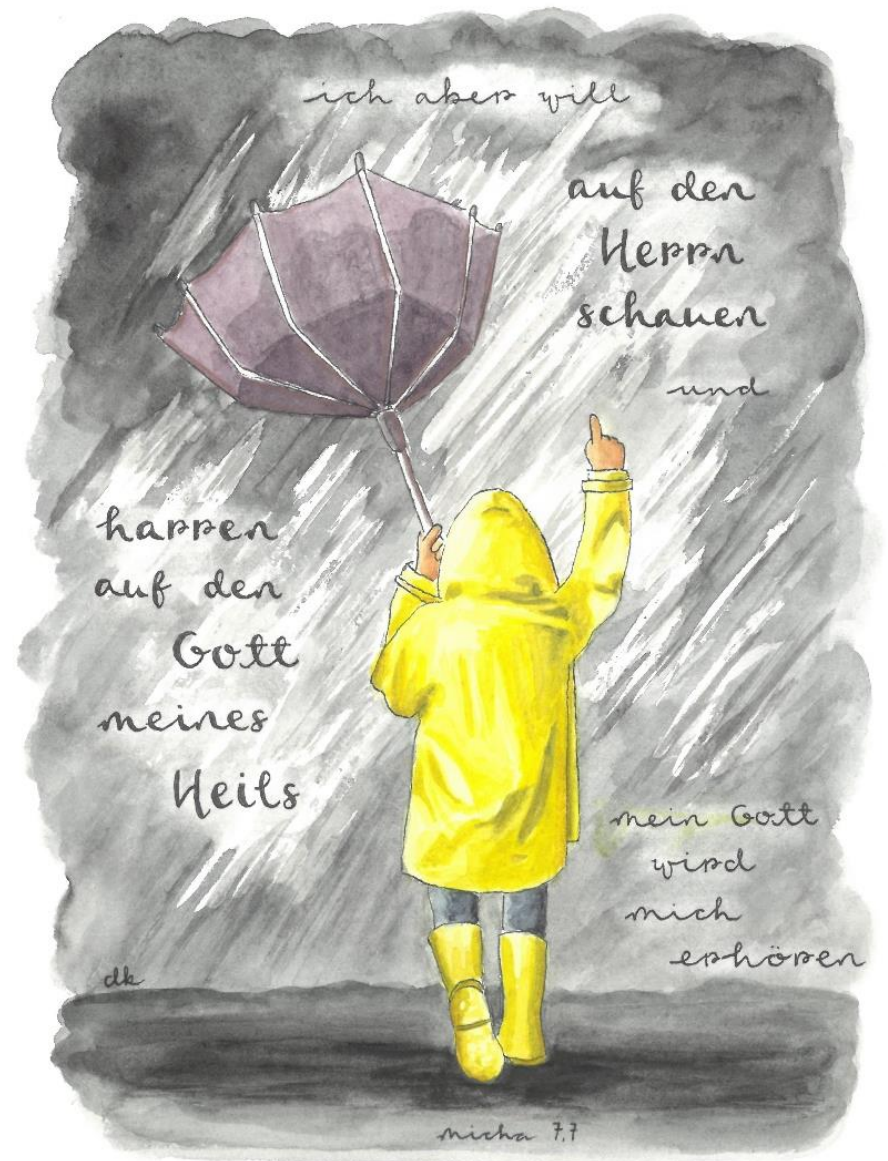 ich aber will
auf den
Herrn
schauen
und
harren
auf den
Gott
meines
Heils
mein Gott
wird
mich
erhören
dk
micha 7,7